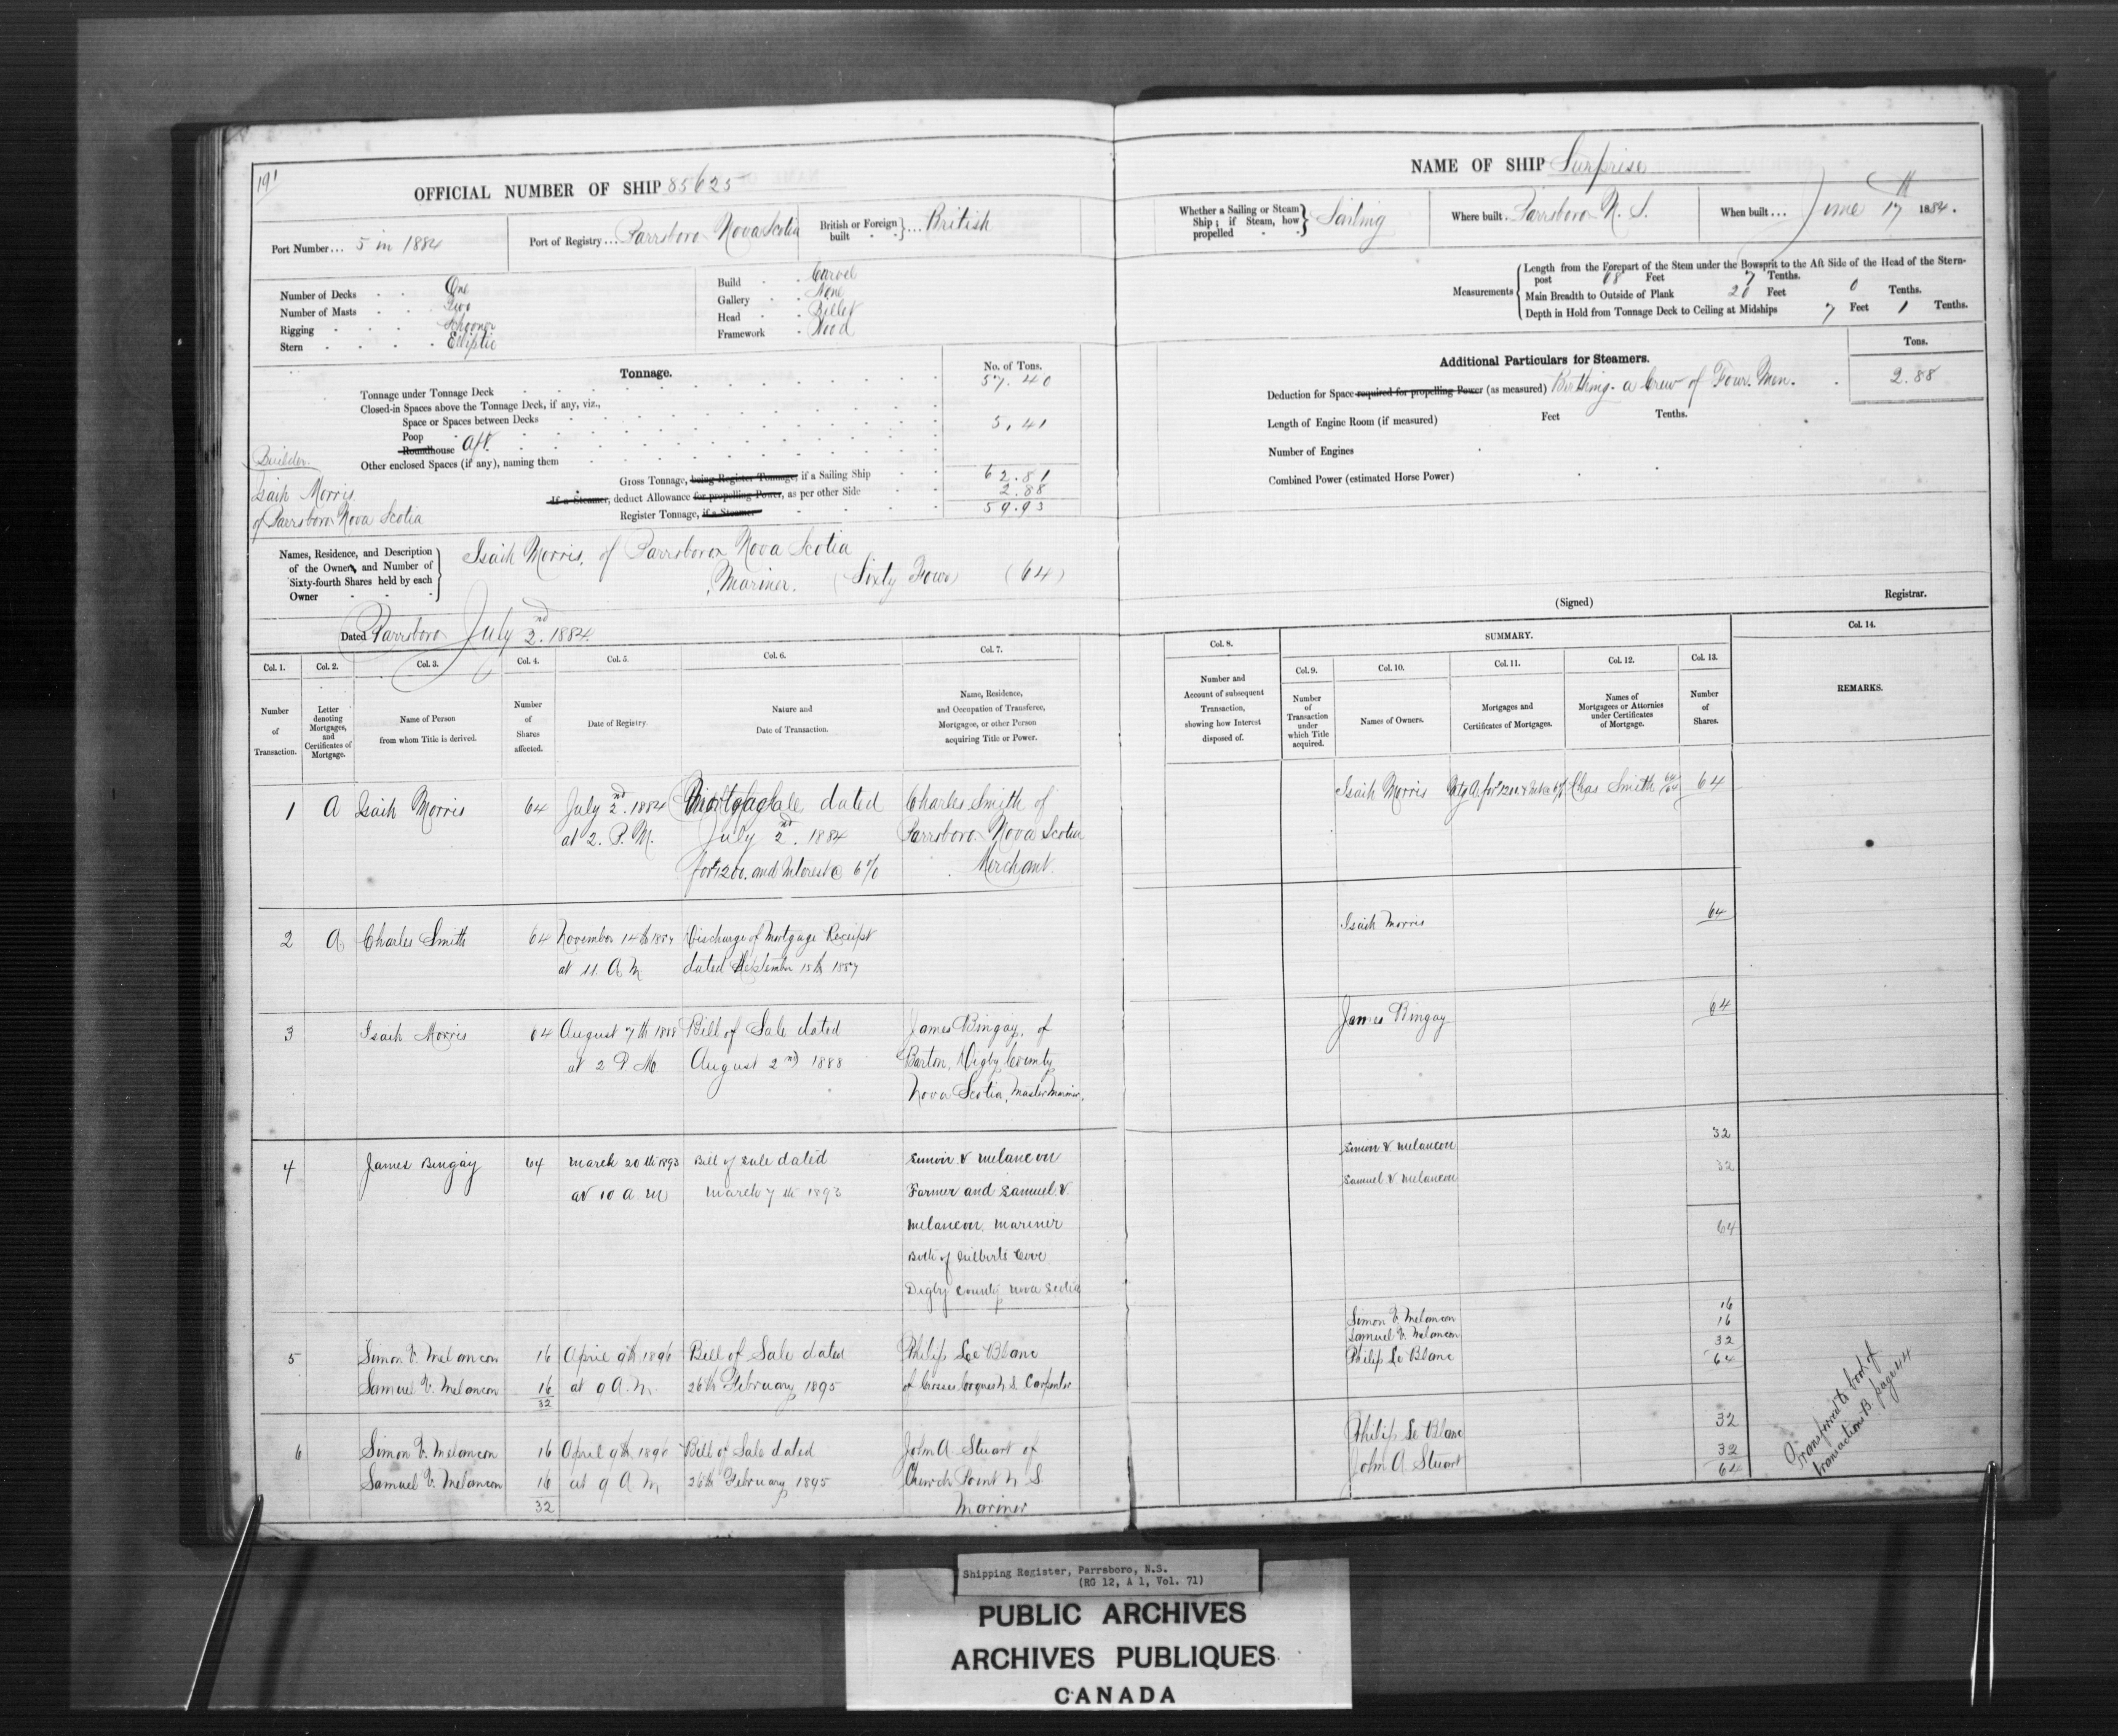 191
OFFICIAL NUMBER OF SHIP 85625
Port Number... 5 in 1884
Port of Registry... Parrsboro Nova Scotia
British or Foreign built } ... British
Number of Decks One
Number of Masts Two
Rigging Schooner
Stern Elliptic
Build Carvel
Gallery None
Head Billet
Framework Wood
Tonnage.
No. of Tons.
Tonnage under Tonnage Deck 57.40
Closed-in Spaces above the Tonnage Deck, if any, viz.,
Space or Spaces between Decks
Poop 5.41
Roundhouse Aft.
Other enclosed Spaces (if any), naming them
Gross Tonnage, being Register Tonnage, if a Sailing Ship 62.81
If a Steamer, deduct Allowance for propelling Power, as per other Side 2.88
Register Tonnage, if a Steamer 59.93
Builder.
Isaih Morris
of Parrsboro Nova Scotia
Names, Residence, and Description
of the Owner, and Number of
Sixty-fourth Shares held by each
Owner
Isaih Morris, of Parrsboro Nova Scotia
Mariner. (Sixty Four) (64)
Dated Parrsboro July 2nd. 1884.
Col. 1. Col. 2. Col. 3. Col. 4. Col. 5. Col. 6. Col. 7.
Number of Transaction.
Letter denoting Mortgages, and Certificates of Mortgage.
Name of Person from whom Title is derived.
Number of Shares affected.
Date of Registry.
Nature and Date of Transaction.
Name, Residence, and Occupation of Transferee, Mortgagee, or other Person acquiring Title or Power.
1 A Isaih Morris 64 July 2nd. 1884 Mortgage dated Charles Smith of
at 2. P.M. July 2nd. 1884 Parrsboro Nova Scotia
for $1200. and Interest @ 6% Merchant.
2 A Charles Smith 64 November 14th 1887 Discharge of Mortgage Receipt
at 11 A M dated September 15th 1887
3 Isaih Morris 64 August 7th 1888 Bill of Sale dated James Bingay, of
at 2 P M August 2nd 1888 Barton, Digby County
Nova Scotia, Master Mariner.
4 James Bingay 64 March 20th 1893 Bill of Sale dated Simon V Melancon
at 10 a.m March 7th 1893 Farmer and Samuel V.
Melancon. Mariner
Both of Gilberts Cove
Digby County Nova Scotia
5 Simon V. Melancon 16 April 9th 1896 Bill of Sale dated Philip Le Blanc
Samuel V. Melancon 16 at 9 A.M. 26th February 1895 of Grosses Coques N.S. Carpenter
32
6 Simon V. Melancon 16 April 9th 1896 Bill of Sale dated John A. Stuart of
Samuel V. Melancon 16 at 9 A M 26th February 1895 Church Point N S.
32 Mariner
NAME OF SHIP Surprise
Whether a Sailing or Steam Ship; if Steam, how propelled } Sailing
Where built. Parrsboro N. S.
When built... June 17th 1884.
Measurements
Length from the Forepart of the Stem under the Bowsprit to the Aft Side of the Head of the Stern-
post 68 Feet 7 Tenths.
Main Breadth to Outside of Plank 20 Feet 0 Tenths.
Depth in Hold from Tonnage Deck to Ceiling at Midships 7 Feet 1 Tenths.
Additional Particulars for Steamers.
Tons.
Deduction for Space required for propelling Power (as measured) Birthing a Crew of Four Men. 2.88
Length of Engine Room (if measured) Feet Tenths.
Number of Engines
Combined Power (estimated Horse Power)
(Signed) Registrar.
Col. 8. SUMMARY. Col. 14.
Col. 9. Col. 10. Col. 11. Col. 12. Col. 13.
Number and Account of subsequent Transaction, showing how Interest disposed of.
Number of Transaction under which Title acquired.
Names of Owners.
Mortgages and Certificates of Mortgages.
Names of Mortgagees or Attornies under Certificates of Mortgage.
Number of Shares.
REMARKS.
Isaih Morris Mtg A for $1200 & Int @ 6% Chas Smith 64/64 64
Isaih Morris 64
James Bingay 64
Simon V Melancon 32
Samuel V Melancon 32
64
Simon V. Melancon 16
Samuel V. Melancon 16
Philip Le Blanc 32
64
Philip Le Blanc 32
John A Stuart 32
64
Transferred to book of
transactions B. page 44
Shipping Register, Parrsboro, N.S.
(RG 12, A 1, Vol. 71)
PUBLIC ARCHIVES
ARCHIVES PUBLIQUES
CANADA